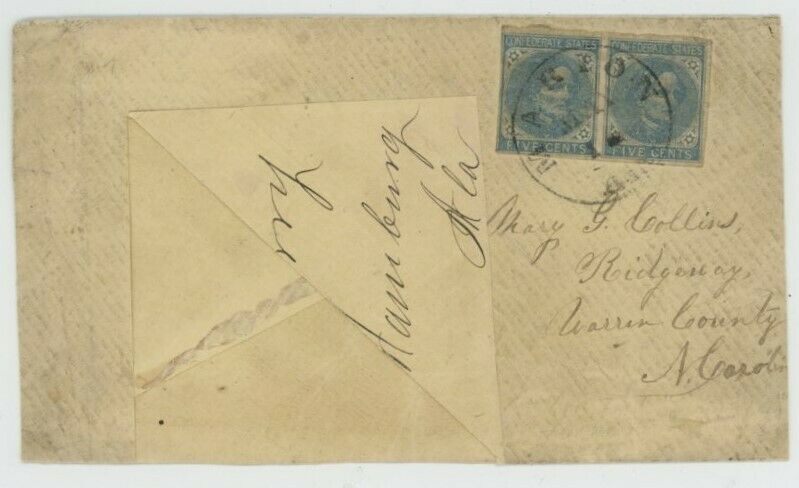 CONFEDERATE STATES CONFEDERATE STATES
FIVE CENTS FIVE CENTS
MARION
Mary G. Collins,
Ridgeway,
Warren County
N. Carolin
Hamburg
Ala